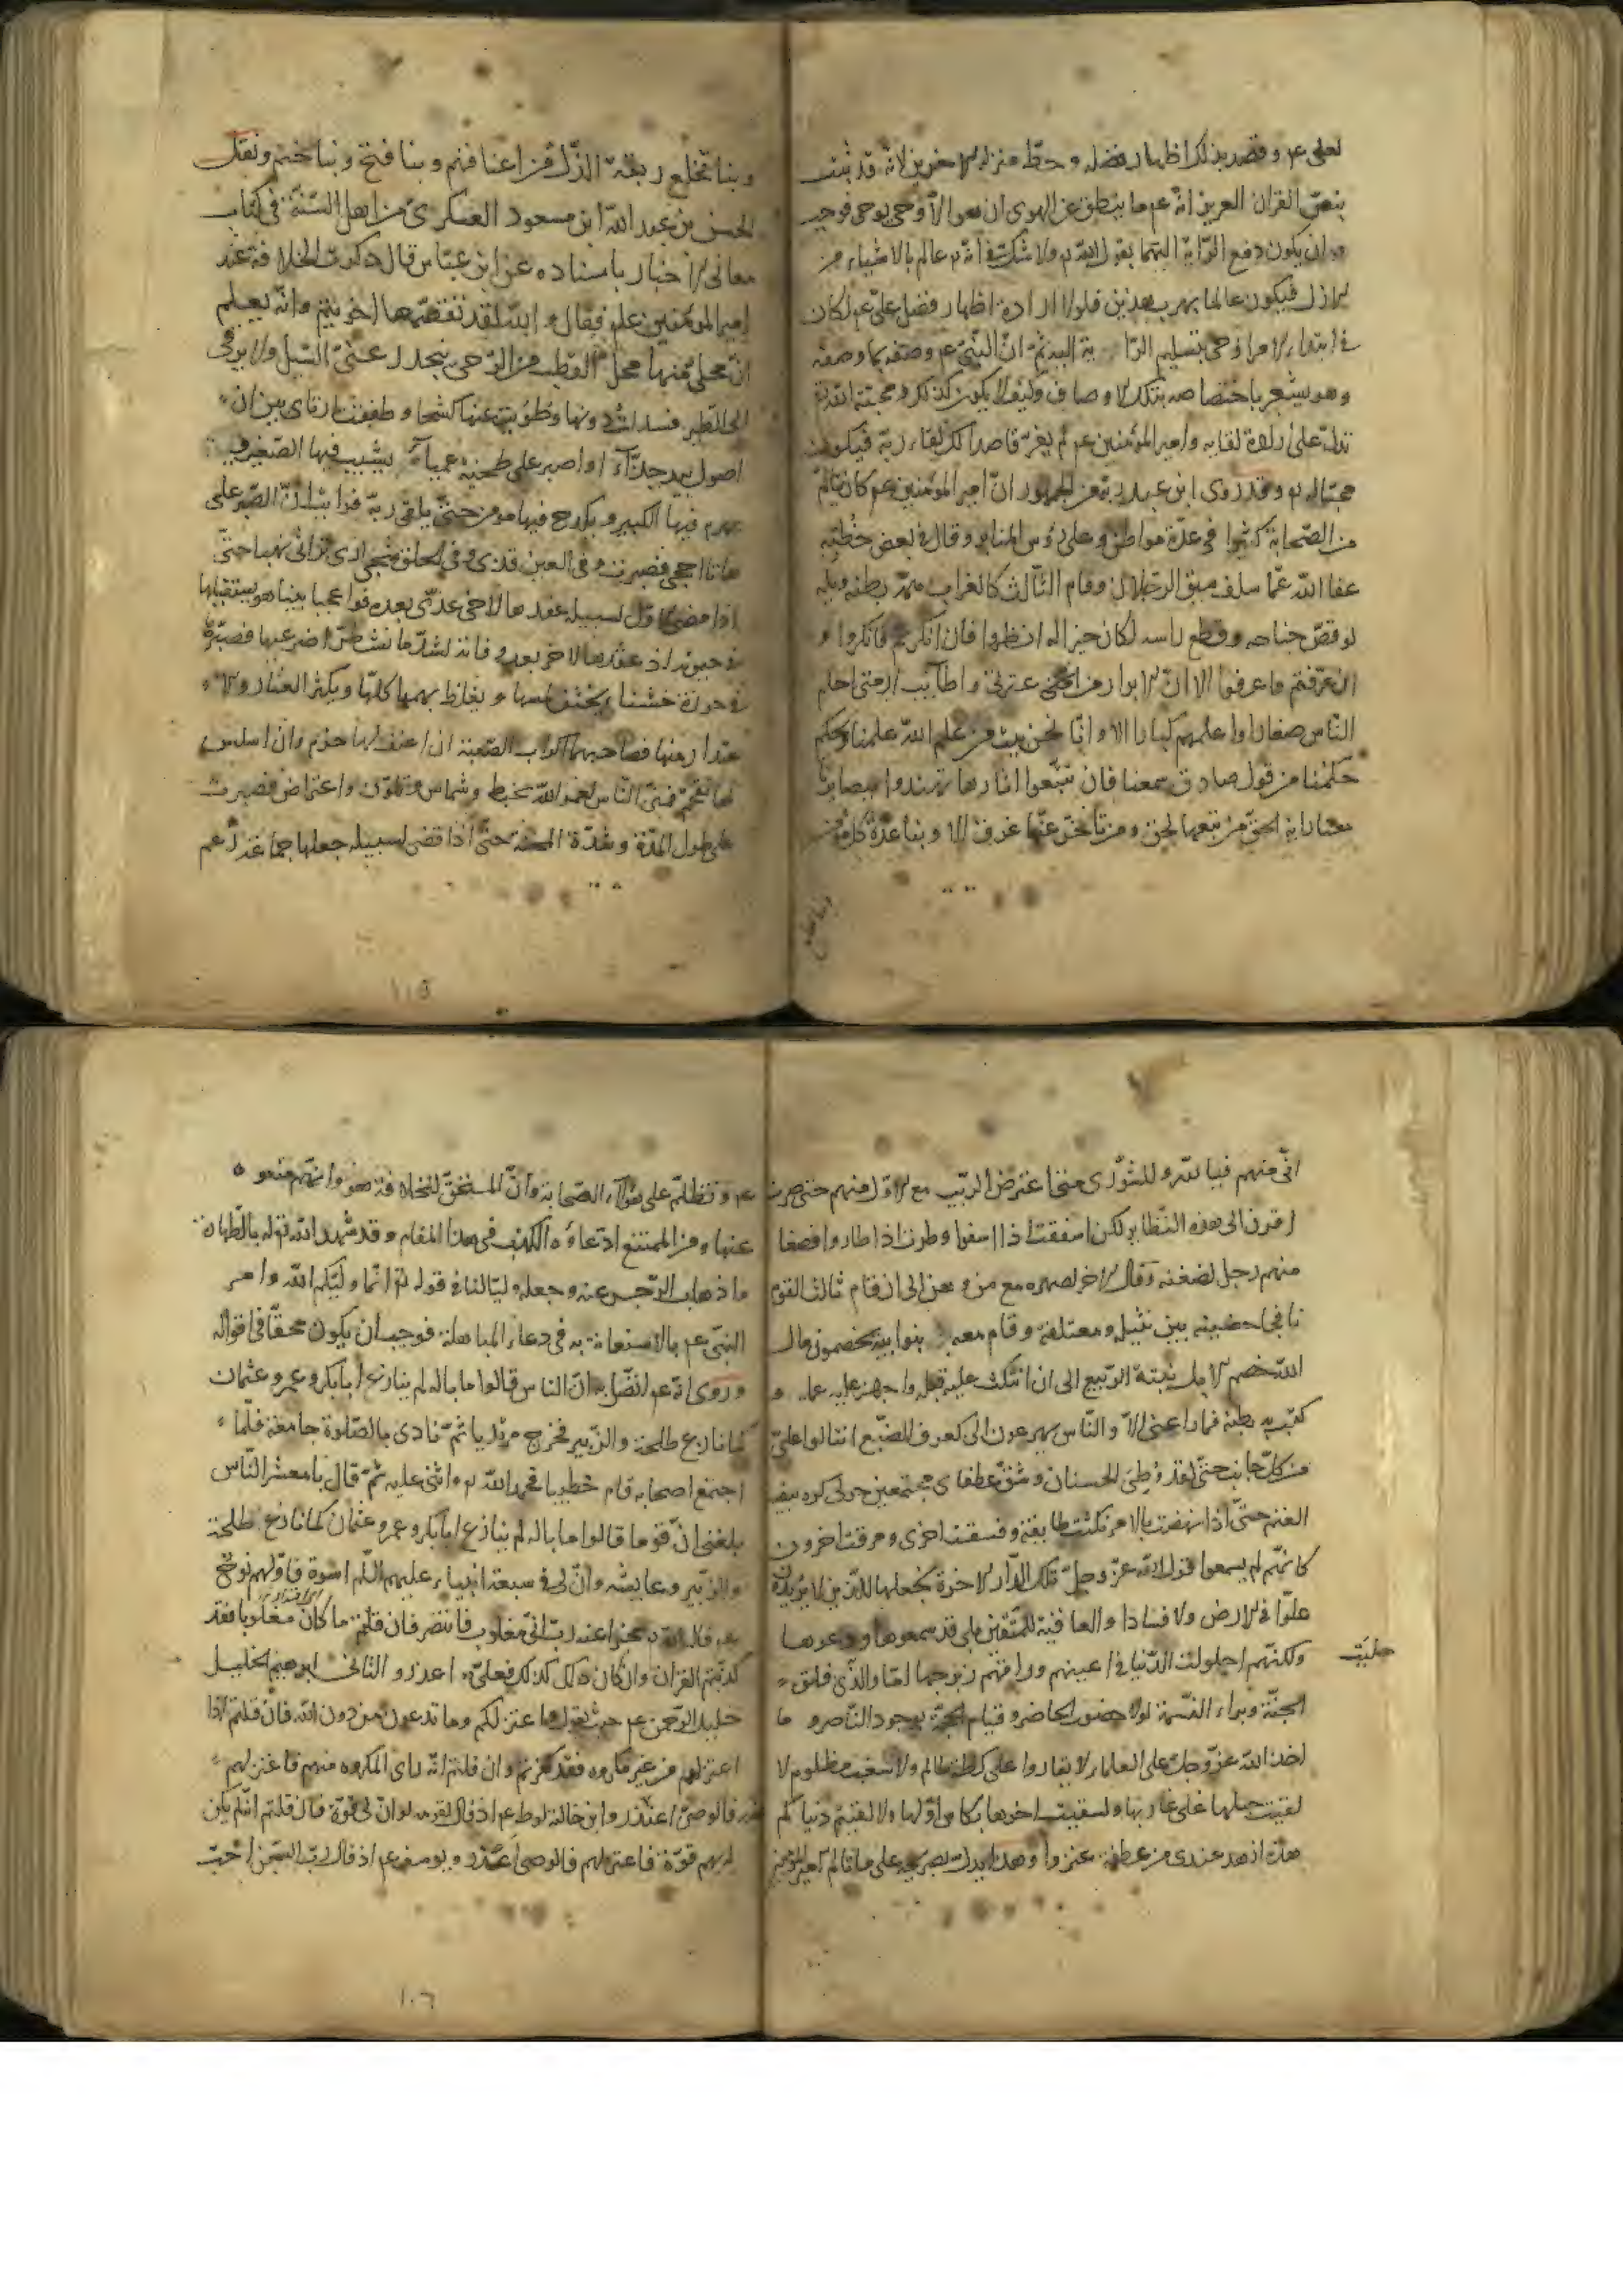 لعلى عم وقصد بذلك اظهار فضله وحط منزله الاخرين لانه قد ثبت
بنص القران العزيز انه عم ما ينطق عن الهوى ان هو الا وحى يوحى فوجب
ان يكون دفع الراية اليهما بقول الله تم ولا شك فى انه تم عالم بالاشياء من
الازل فيكون عالما بهرب هذين فلولا ارادة اظهار فضل على عم لكان
فى ابتداء الامر اوحى بتسليم الراية اليه ثم ان النبى عم وصفه بما وصفه
وهو يشعر باختصاصه بتلك الاوصاف وكيف لا يكون كذلك ومحبته
تدل على ارادة لقايه وامير المؤمنين عم لم يفر قاصدا لك لقاء ربه فيكون
محبا له تم وقد روى ابن عبد ربه من الجمهور ان امير المؤمنين عم كان يتالم
من الصحابة كثيرا فى عدة مواطن وعلى رؤس المنابر وقال فى بعض خطبه
عفا الله عما سلف سبق الرجلان وقام الثالث كالغراب همته بطنه ويله
لو قص جناحه وقطع راسه لكان خيرا له انظروا فان انكرتم فانكروا و
ان عرفتم فاعرفوا الا ان الابرار من عترتى واطائب ارومتى احلم
الناس صغارا واعلمهم كبارا الا وانا نحن بيت من علم الله علمنا وبحكم
حكمنا من قول صادق سمعنا فان تتبعوا اثارنا تهتدوا ببصايرنا
معنا راية الحق من تبعها لحق ومن تاخر عنها غرق الا وبنا عزة كل مؤمن
وبنا تخلع ربقة الذل من اعناقهم وبنا فتح وبنا ختم ونقل
الحسن بن عبد الله ابن مسعود العسكرى من اهل السنة فى كتاب
معانى الاخبار باسناده عن ابن عباس قال ذكرت الخلافة عند
امير المؤمنين علم فقال والله لقد تقمصها اخو تيم وانه يعلم
ان محلى منها محل القطب من الرحى ينحدر عنى السيل ولا يرقى
الى الطير فسدلت دونها وطويت عنها كشحا وطفقت ارتاى بين ان
اصول بيد جذاء او اصبر على طخية عمياء يشيب فيها الصغير
يهرم فيها الكبير ويكدح فيها مومن حتى يلقى ربه فرايت ان الصبر على
هاتا احجى فصبرت وفى العين قذى وفى الحلق شجى ارى تراثى نهبا حتى
اذا مضى الاول لسبيله عقدها لاخى عدى بعده فواعجبا بينا هو يستقيلها
فى حيوته اذ عقدها لاخر بعد وفاته لشد ما تشطرا ضرعيها فصيرها
فى حوزة خشناء يخشن مسها ويغلظ كلمها ويكثر العثار و الا
عتذار منها فصاحبها كراكب الصعبة ان اعنف لها حرم وان اسلس
لها تقحم فمنى الناس لعمر الله بخبط وشماس وتلون واعتراض فصبرت
على طول المدة وشدة المحنة حتى اذا قضى لسبيله جعلها جماعة زعم
١٠٥
انى منهم فيا لله وللشورى متى اعترض الريب مع الاول منهم حتى صرت
اقرن الى هذه النظاير لكن اسففت اذا اسفوا وطرت اذا طاروا فصغا
منهم رجل لضغنه ومال الاخر لصهره مع هن وهن الى ان قام ثالث القوم
نافجا حضنيه بين نثيله ومعتلفه وقام معه بنوا ابيه يخضمون مال
الله خضم الابل نبتة الربيع الى ان انتكث عليه فتله واجهز عليه عمله و
كبت به بطنه فما راعنى الا والناس يهرعون الى كعرف الضبع انثالوا على
من كل جانب حتى لقد وطئ الحسنان وشق عطفاى مجتمعين حولى كربيضة
الغنم حتى اذا نهضت بالامر نكثت طايفة وفسقت اخرى ومرقت اخرون
كانهم لم يسمعوا قول الله عز وجل تلك الدار الاخرة نجعلها للذين لا يريدون
علوا فى الارض ولا فسادا والعاقبة للمتقين بلى قد سمعوها ووعوها
ولكنهم احلولت الدنيا فى اعينهم وراقهم زبرجها اما والذى فلق
حليت
الحبة وبراء النسمة لولا حضور الحاضر وقيام الحجة بوجود الناصر و ما
اخذ الله عز وجل على العلماء لا يقاروا على كظة ظالم ولا سغب مظلوم لا
لقيت حبلها على غاربها ولسقيت اخرها بكاس اولها ولالفيتم دنياكم
هذه ازهد عندى من عطفة عنز وهذا يدل بصريحه على ما قاله امير المؤمنين
عم وتظلم على هؤلاء الصحابة وان المستحق للخلافة هو وانهم منعو
عنها ومن الممتنع ادعاؤه الكذب فى هذا المقام وقد شهد الله له بالطهارة
اذهاب الرجس عنه وجعله وليا لنا فى قوله تم انما وليكم الله وامر
النبى عم بالاستعانة به فى دعاء المباهلة فوجب ان يكون محقا فى اقواله
وروى انه عم ان الناس قالوا ما باله لم ينازع ابا بكر وعمر وعثمان
كما نازع طلحة والزبير فخرج مرتديا ثم نادى بالصلوة جامعة فلما
اجتمع اصحابه قام خطيبا فحمد الله تم واثنى عليه ثم قال يا معشر الناس
بلغنى ان قوما قالوا ما باله لم ينازع ابا بكر وعمر وعثمان كما نازع طلحة
والزبير وعايشه وان لى فى سبعة انبياء عليهم السلم اسوة فاولهم نوح
عم قال الله تم مخبرا عنه رب انى مغلوب فانتصر فان قلتم ما كان مغلوبا فقد
كذبتم القران وان كان ذلك كذلك فعلى اعذر والثانى ابرهيم الخليل
خليل الرحمن عم حيث يقول واعتزلكم وما تدعون من دون الله فان قلتم انه
اعتزلهم من غير مكروه فقد كفرتم وان قلتم انه راى المكروه منهم فاعتزلهم
فالوصى اعذر وابن خالته لوط عم اذ قال لقومه لو ان لى بكم قوة فان قلتم انه لم يكن
له بهم قوة فاعتزلهم فالوصى اعذر ويوسف عم اذ قال رب السجن احب
١٠٦